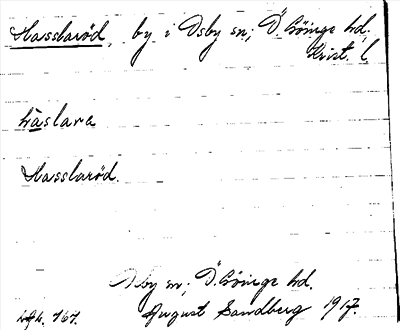 Hasslaröd, by i Osby sn; Ö. Göinge hd,
Krist. l.
hàslara
Hasslaröd.
Osby sn; Ö. Göinge hd.
August Sandberg 1917.